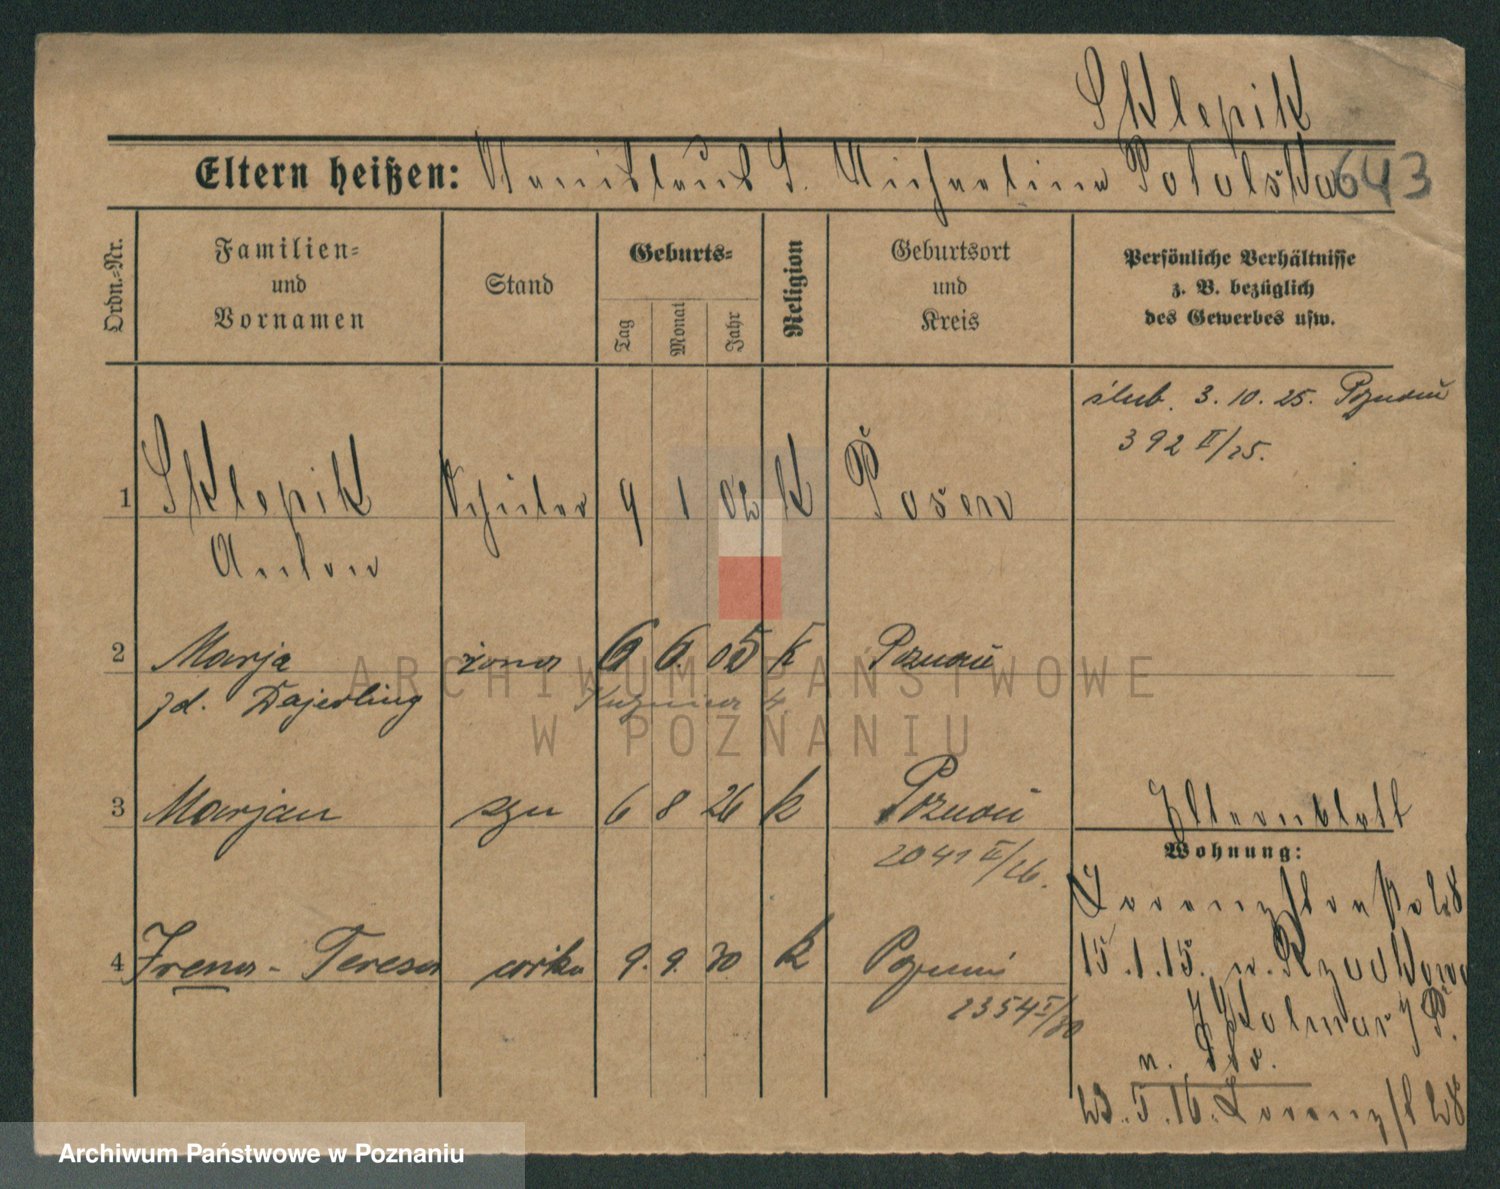 Sklepik
Eltern heißen: Stanislaus S. Michaelina Potolska 643
Ordn.=Nr.
Familien=
und
Vornamen
Stand
Geburts=
Tag
Monat
Jahr
Religion
Geburtsort
und
Kreis
Persönliche Verhältnisse
z. B. bezüglich
des Gewerbes usw.
ślub. 3. 10. 25. Poznań
392 II/25.
1 Sklepik Schüler 9 1 02 K Posen
Anton
2 Marja żona 6 6. 05 K Poznań
zd. Dajerling
3 Marjan syn 6 8 26 k Poznań
2041 II/26.
4 Irena - Teresa córka 9. 9. 30 k Poznań
2354 I/30
Elternblatt
Wohnung:
15.1.15. n.
Kolmar i/P.
23.5.16.
ARCHIWUM PAŃSTWOWE
W POZNANIU
Archiwum Państwowe w Poznaniu